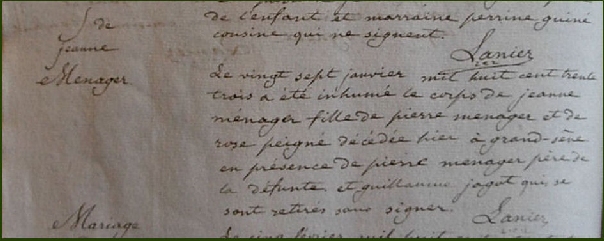 de l'enfant et marraine perrine guiné
cousine qui ne signent.
Lanier
S de
jeanne
Menager
Le vingt sept janvier mil huit cent trente
trois a été inhumé le corps de jeanne
menager fille de pierre menager et de
rose peigné décédée hier à grand-sêne
en présence de pierre menager père de
la défunte et guillaume jagot qui se
sont retirés sans signer. Lanier
Mariage
Le cinq février mil huit cent